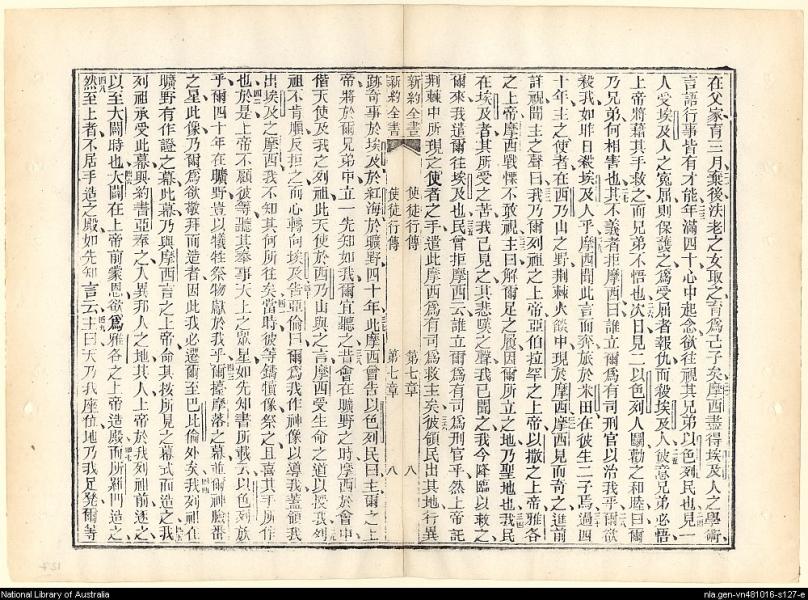 在父家育三月棄後法老之女取之育爲己子矣摩西盡得埃及人之學術
言語行事皆有才能年滿四十心中起念欲往視其兄弟以色列民也見一
人受埃及人之寃屈則保護之爲受屈者報仇而殺埃及人彼意兄弟必悟
上帝將藉其手救之而兄弟不悟也次日見二以色列人鬬勸之和睦曰爾
乃兄弟何相害也其不義者拒摩西曰誰立爾爲有司刑官以治我乎爾欲
殺我如昨日殺埃及人乎摩西聞此言而奔旅於米田在彼生二子焉過四
十年主之使者在西乃山之野荆棘火燄中現於摩西摩西見而奇之進前
詳視聞主之聲曰我乃爾列祖之上帝亞伯拉罕之上帝以撒之上帝雅各
之上帝摩西戰慄不敢視主曰解爾足之履因爾所立之地乃聖地也我民
在埃及者其所受之苦我已見之其悲嘆之聲我已聞之我今降臨以救之
爾來我遣爾往埃及也民曾拒摩西云誰立爾爲有司爲刑官乎然上帝託
荆棘中所現之使者之手遣此摩西爲有司爲救主矣彼領民出其地行異
新約全書 使徒行傳 第七章 八
新約全書 使徒行傳 第七章 八
跡奇事於埃及於紅海於曠野四十年此摩西曾告以色列民曰主爾之上
帝將於爾兄弟中立一先知如我爾宜聽之昔會在曠野之時摩西於會中
偕天使及我之列祖此天使於西乃山與之言摩西受生命之道以授我列
祖不肯順反拒之而心轉向埃及告亞倫曰爾爲我作神像以導我蓋領我
出埃及之摩西我不知其何所往矣當時彼等鑄犢像祭之且喜其手所作
也於是上帝不顧彼等聽其奉事天上之眾星如先知書所載云以色列族
乎爾四十年在曠野豈以犧牲祭物獻於我乎爾擡摩落之幕並爾神臉番
之星此像乃爾爲欲敬拜而造者因此我必遷爾至巴比倫外矣我列祖在
曠野有作證之幕此幕乃與摩西言之上帝命其按所見之幕式而造之我
列祖承受此幕與約書亞奉之入異邦人之地其人上帝於我列祖前逐之
以至大闢時也大闢在上帝前蒙恩欲爲雅各之上帝造殿而所羅門造之
然至上者不居手造之殿如先知言云主曰天乃我座位地乃我足凳爾等
National Library of Australia
nla.gen-vn481016-s127-e